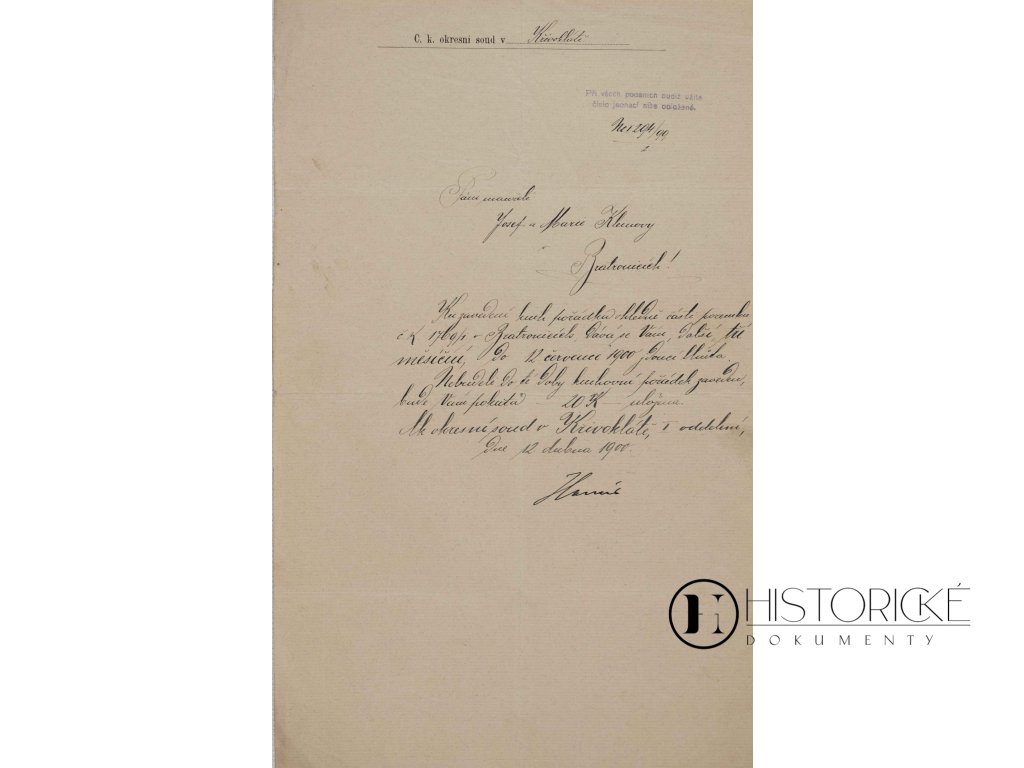 C. k. okresní soud v Křivoklátě
Při všech podáních budiž užito
číslo jednací níže položené.
Nc I 294/99
2
Pánu manželé
Josef a Marie Klimovy
Bratronicích!
Ku zavedení knih. pořádku ohledně části pozemku
č. k. 1769/1 v Bratronicích, dává se Vám, další, tří
měsíční, do 12 července 1900 jdoucí lhůta.
Nebudele do té doby knihovní pořádek zaveden,
bude Vám pokuta 20 K uložena.
okresní soud v Křivoklátě, I oddělení,
dne 12 dubna 1900.
HISTORICKÉ
DOKUMENTY